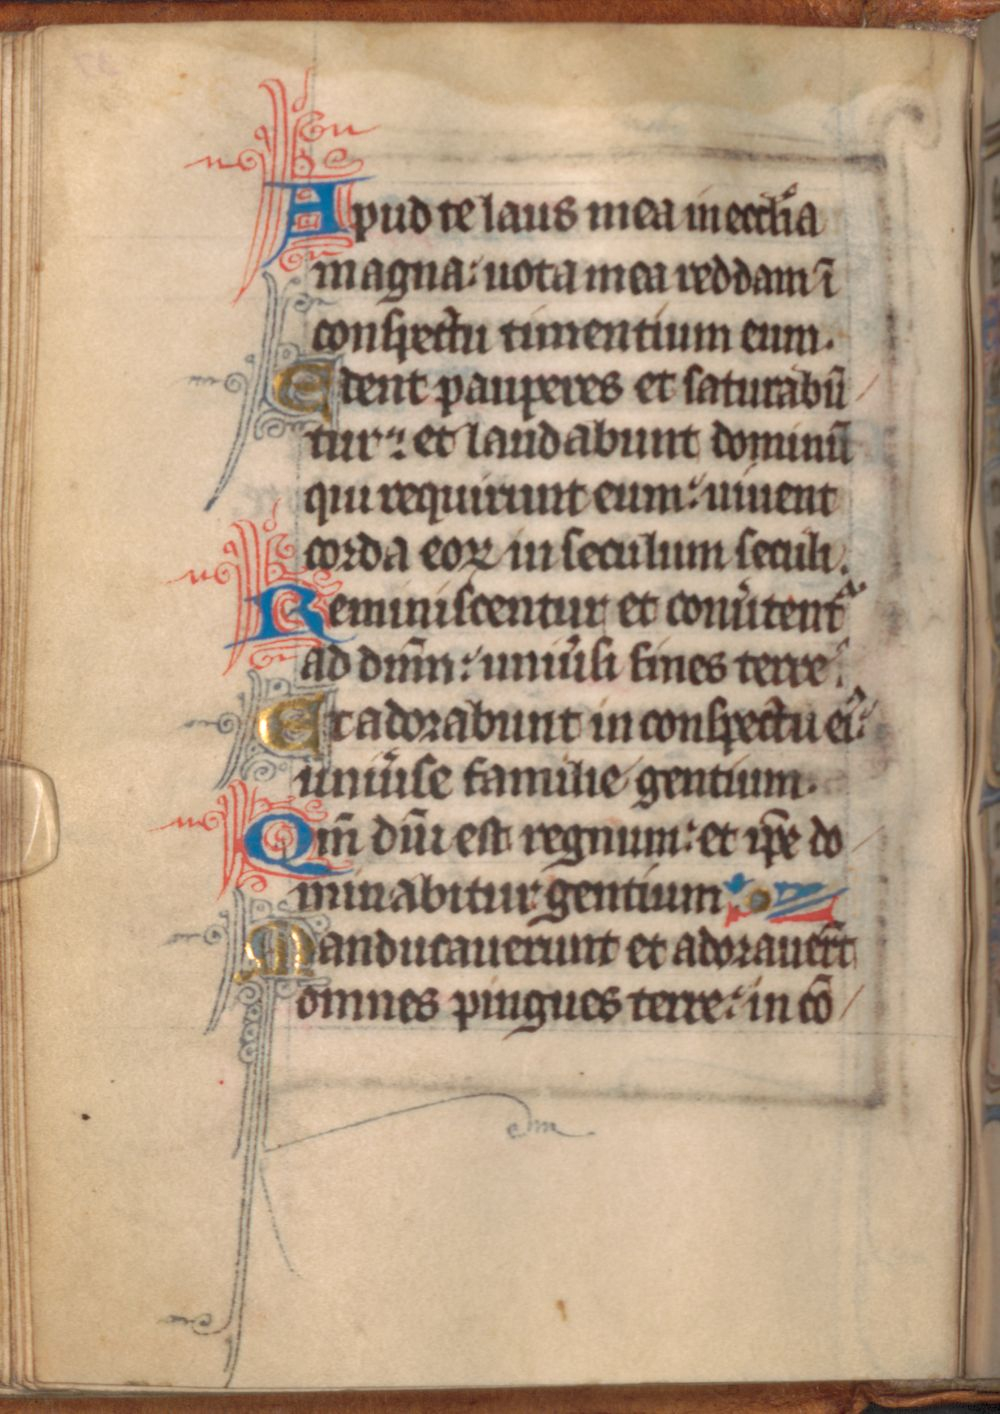 Apud te laus mea in ecclīa
magna: uota mea reddam ī
conspectu timentium eum.
Edent pauperes et saturabū
tur: et laudabunt dominū
qui requirunt eum: uiuent
corda eoꝝ in seculum seculi.
Reminiscentur et conu̾tent᷑
ad dn̄m: uniu̾si fines terre.
Et adorabunt in conspectu ei᷒:
uniu̾se familie gentium.
Qm̄ dn̄i est regnum: et ip̄e do
minabitur gentium
Manducauerunt et adorauer̄t
omnes pingues terre: in cō